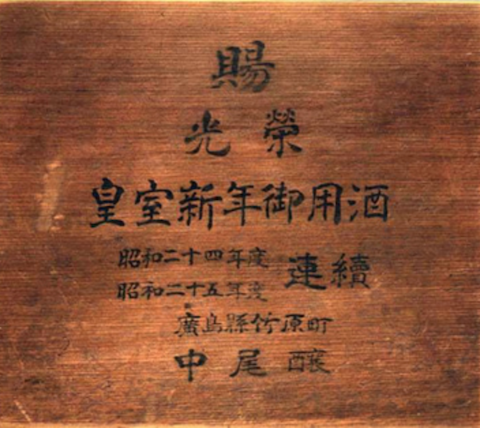 賜
光榮
皇室新年御用酒
昭和二十四年度
昭和二十五年度
連續
廣島縣竹原町
中尾醸